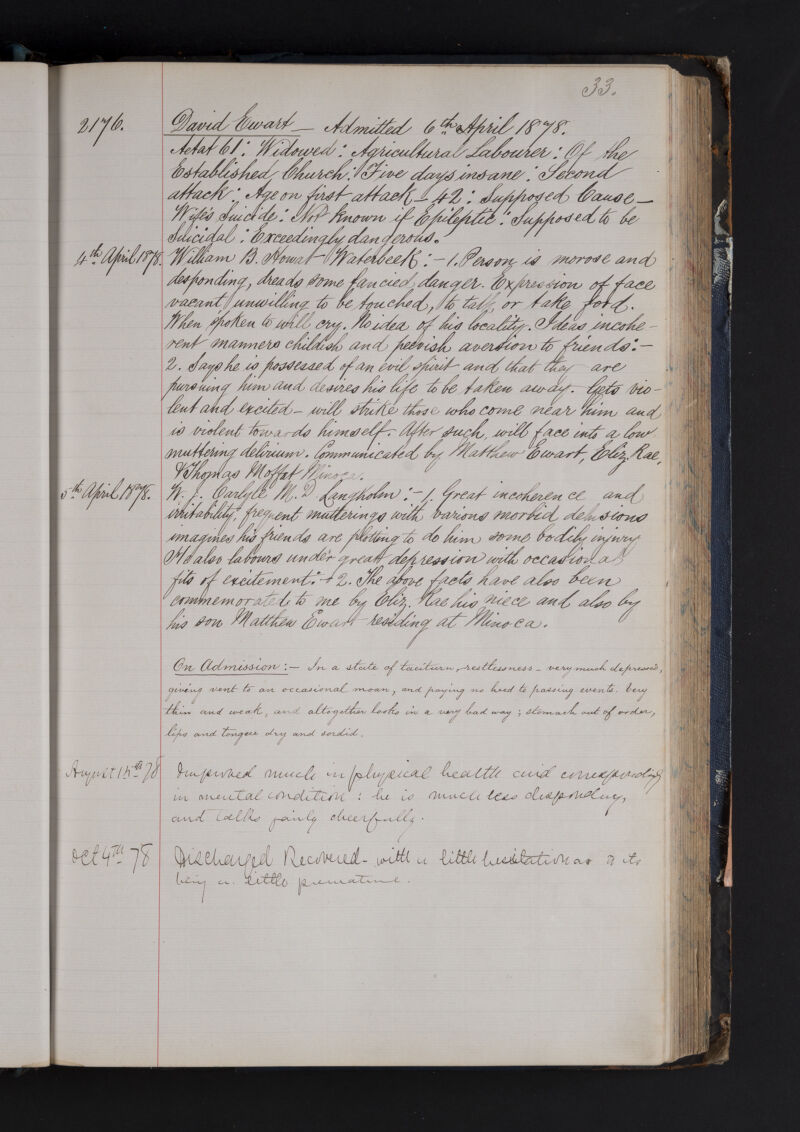 33.
2176. David Ewart — Admitted 6th April 1878.
Aetat 61: Widowed: Agricultural Labourer: Of the
Established Church: Five days insane: Second
attack: Age on first attack — 42: Supposed Cause —
Wife's Suicide: Not known if Epileptic: Supposed to be
Suicidal: Exceedingly dangerous.
4th April 1878. William B. Howat Waterbeck: — 1. Person is morose and
desponding, dreads some fancied danger. Expression of face
vacant, unwilling to be touched, to talk, or take food.
When spoken to will cry. No idea of his locality. Ideas incohe-
rent manners childish and peevish aversion to friends: —
2. Says he is possessed of an evil spirit and that they are
pursuing him and desires his life to be taken away. Gets vio-
lent and excited — will strike those who come near him and
is violent towards himself. After such, will face into a low
muttering delirium. Communicated by Matthew Ewart, Eliz. Rae,
& Thomas Moffat Minoca.
5th April 1878. W. J. Carlyle M.D Langholm: — 1. Great incoherence and
irritability, frequent mutterings with various morbid delusions
imagines his friends are plotting to do him some bodily injury
He also labours under great depression with occasional
fits of excitement: + 2. The above facts have also been
commemorated to me by Eliz. Rae his niece and also by
his son Matthew Ewart residing at Minoca.
On Admission: — In a state of taciturn, restlessness — very much depressed,
giving vent to an occasional moan, and paying no heed to passing events. Very
thin and weak, and altogether looks in a very bad way; stomach out of order,
lips and tongue dry and sordid.
August 15th 78 Improved much in physical health and correspondingly
in mental condition: he is much less desponding,
and talks fairly cheerfully.
Oct 4TH 78 Discharged Recovered — with a little hesitation as to its
being a little premature.